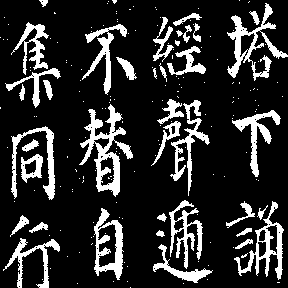 塔下誦
經聲遞
不替自
集同行